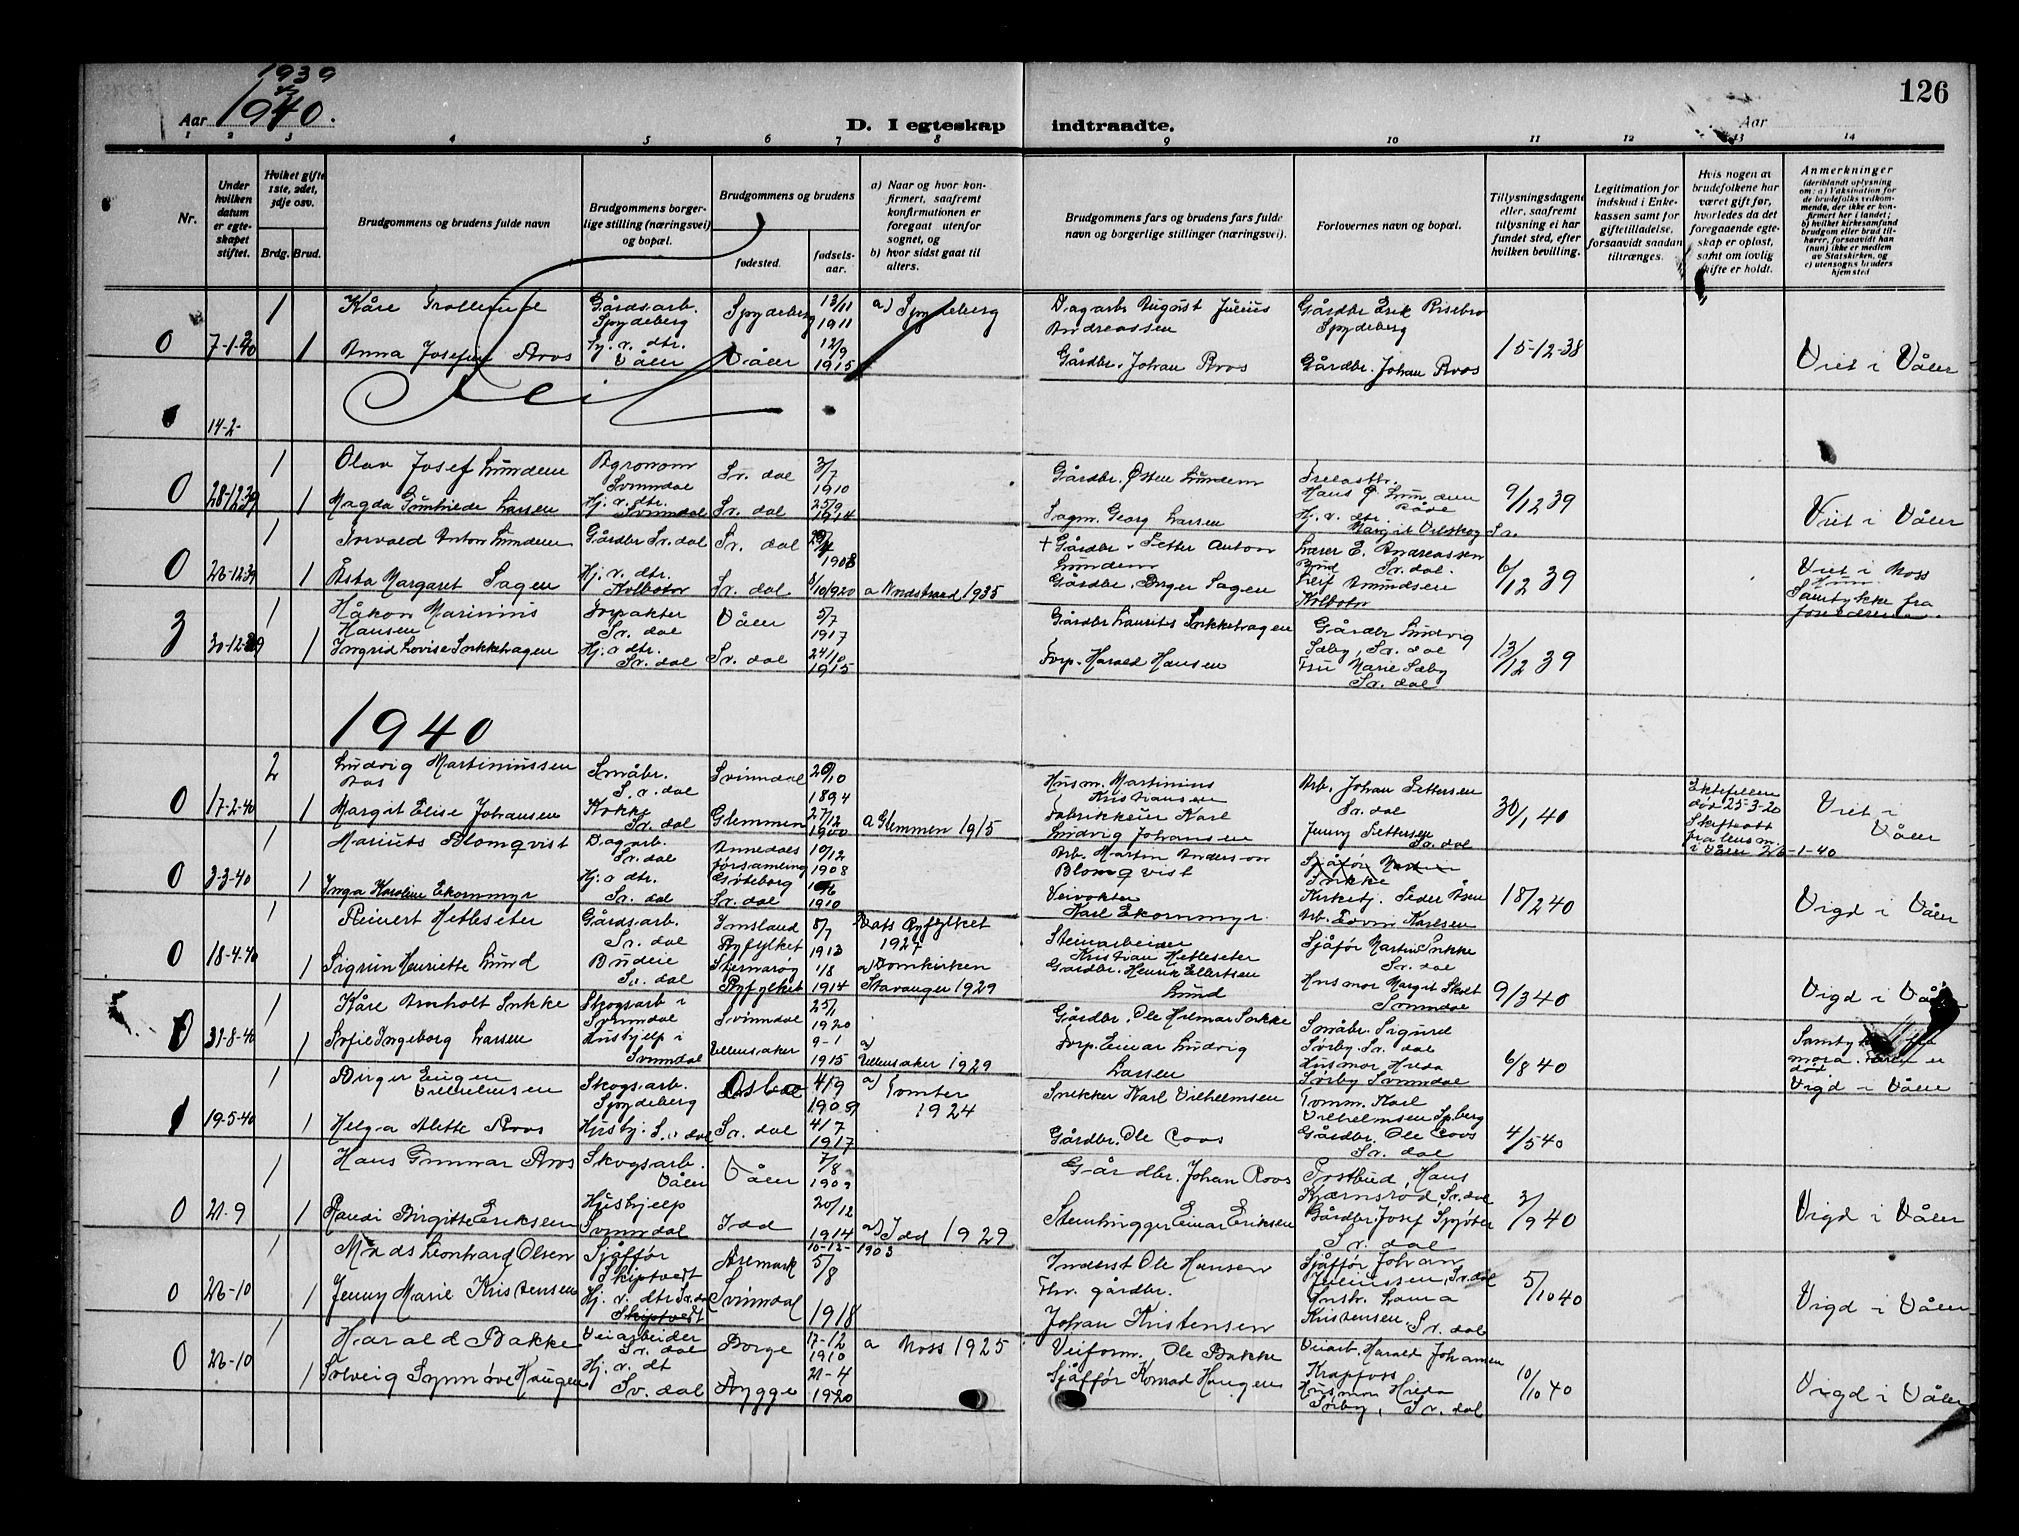 1939
1940.
Aar
D. I egteskap indtraadte.
Aar
126
1 2 3 4 5 6 7 8 9 10 11 12 13 14
Nr.
Under hvilken datum er egteskapet stiftet.
Hvilket gifte 1ste, 2det, 3dje osv.
Brdg. Brud.
Brudgommens og brudens fulde navn
Brudgommens borgerlige stilling (næringsvei) og bopæl.
Brudgommens og brudens
fødested.
fødselsaar.
a) Naar og hvor konfirmert, saafremt konfirmationen er foregaat utenfor sognet, og
b) hvor sidst gaat til alters.
Brudgommens fars og brudens fars fulde navn og borgerlige stillinger (næringsvei).
Forlovernes navn og bopæl.
Tillysningsdagene eller, saafremt tillysning ei har fundet sted, efter hvilken bevilling.
Legitimation for indskud i Enkekassen samt for giftetilladelse, forsaavidt saadan tiltrænges.
Hvis nogen at brudefolkene har været gift før, hvorledes da det foregaaende egteskap er opløst, samt om lovlig skifte er holdt.
Anmerkninger
(deriblandt oplysning om: a) Vaksination for de brudefolks vedkommende, der ikke er konfirmert her i landet; b) hvilket kirkesamfund brudgom eller brud tilhører, forsaavidt han (hun) ikke er medlem av Statskirken, og c) utensogns bruders hjemsted
1 Kåre Trollerud Gårdsarb. Spydeberg Spydeberg 13/11 1911 a) Spydeberg Dagarb August Julius Andreassen Gårdbr Erik Risebro Spydeberg
0 7-1-40 1 Anna Josefine Roos Hj. v. dtr. Våler Våler 12/9 1915 Gårdbr. Johan Roos Gårdbr. Johan Roos 15-12-38 Viet i Våler
Feil
14-2-
1 Olav Josef Lundem Agronom Svinndal Sv. dal 3/7 1910 Gårdbr. Østen Lundem Hans Lundem Råde
0 28-12-39 1 Magda Gunhilde Larsen Hj. v. dtr. Svinndal Sv. dal 25/9 1914 Sagm. Georg Larsen Hj. v. dtr. Margit Sv. 9/12 39 Viet i Våler
1 Torvald Anton Lundem Gårdbr Sv. dal Sv. dal 1908 + Gårdbr. Petter Anton Lundem Lærer E. Andreassen Sv. dal.
0 26-12-39 1 Åsta Margaret Sagen Hj. v. dtr. Kolbotn Sv. dal 8/10 1920 a Nordstrand 1935 Gårdbr. Birger Sagen Leif Amundsen Kolbotn 6/12 39 Viet i Moss Samtykke fra foreldrene.
1 Håkon Marinius Hansen Forpakter Sv. dal Våler 5/7 1917 Gårdbr Laurits Snikkehagen Gårdbr Ludvig Sæby, Sv. dal
3 30-12-39 1 Ingrid Lovise Snikkehagen Hj. v dtr. Sv. dal Sv. dal 24/10 1915 Forp. Harald Hansen Fru Marie Sæby Sv. dal 13/12 39
1940
2 Ludvig Martiniussen Aas Småbr. Sv. dal Svinndal 20/10 1894 Husm. Martinius Kristiansen Arb. Johan Pettersen Sv. dal
0 17-2-40 1 Margit Elise Johansen Kokke Sv. dal Glemmen 27/12 1900 a Glemmen 1915 Fabrikkeier Karl Ludvig Johansen Jenny Pettersen Sv. dal 30/1 40 Ektefellen død 25-3-20 Skifteatt fra lensm. i Våler 26-1-40 Viet i Våler
1 Marius Blomqvist Dagarb. Sv. dal Annedals forsamling Gøteborg 10/12 1908 Arb. Martin Anderson Blomqvist Sjåfør Martin Snikke
0 3-3-40 1 Inga Karoline Ekornmyr Hj. v dtr. Sv. dal Sv. dal 1910 Veivokter Karl Ekornmyr. Kirketj. Peder Åsen Arb. Edvin Karlsen 18/2 40 Vigd i Våler
1 Reinert Hetleseter Gårdsarb. Sv. dal Imsland Ryfylket 8/7 1913 Vats Ryfylket 1927 Steinarbeider Kristian Hetleseter Sjåfør Martin Snikke Sv. dal
0 18-4-40 1 Sigrun Henriette Lund Budeie Sv. dal Stjernarøy Ryfylket 1/8 1914 a) Domkirken Stavanger 1929 Gårdbr. Henrik Ellertsen Lund Husmor Margit Skolt Svinndal 9/3 40 Vigd i Våler
1 Kåre Arnholt Snikke Skogsarb i Svinndal Svinndal 25/1 1920 Gårdbr. Ole Hilmar Snikke Småbr. Sigurd Sørby. Sv. dal
0 31-8-40 1 Sofie Ingeborg Larsen Hushjelp i Svinndal Ullensaker 9-1 1915 a) Ullensaker 1929 Forp. Einar Ludvig Larsen Husmor Hilda Sørby Svinndal 6/8 40 Samtykke mora. Faren er død. Vigd i Våler
1 Birger Eugen Vilhelmsen Skogsarb. Spydeberg 4/9 a) Tomter 1924 Snekker Karl Vilhelmsen Tomm. Karl Vilhelmsen Spberg
1 19-5-40 1 Helga Alette Roos Hushj. Sv. dal Sv. dal 4/7 1917 Gårdbr. Ole Roos Gårdbr. Ole Roos Sv. dal 4/5 40
1 Hans Gunnar Roos Skogsarb. Våler Våler 7/8 1909 Gårdbr. Johan Roos Postbud Hans Kjærnsrød, Sv. dal
0 21-9 1 Randi Birgitte Eriksen Hushjelp Svinndal Idd 20/12 1914 a) Idd 1929 Stenhugger Einar Eriksen Gårdbr. Josef Sv. dal 3/9 40 Vigd i Våler
1 Mads Leonhard Olsen Sjåffør Skiptvedt Aremark 10-12-1903 Inderst Ole Hansen Sjåffør Johan Juliussen, Sv. dal
0 26-10 1 Jenny Marie Kristensen Hj. v. dtr Sv. dal Skiptvedt Svinndal 5/8 1918 Fhv. gårdbr. Johan Kristensen Hustr. Laura Kristensen, Sv. dal 5/10 40 Vigd i Våler
1 Harald Bakke Veiarbeider Sv. dal Borge 17-12 1910 a Moss 1925 Veiform. Ole Bakke Veiarb. Harald Johansen Krapfoss
0 26-10 1 Solveig Synnøve Haugen Hj. v. dt Sv. dal Rygge 21-4 1920 Sjåffør Konrad Haugen Husmor Hilda Sørby, Sv. dal 10/10 40 Vigd i Våler